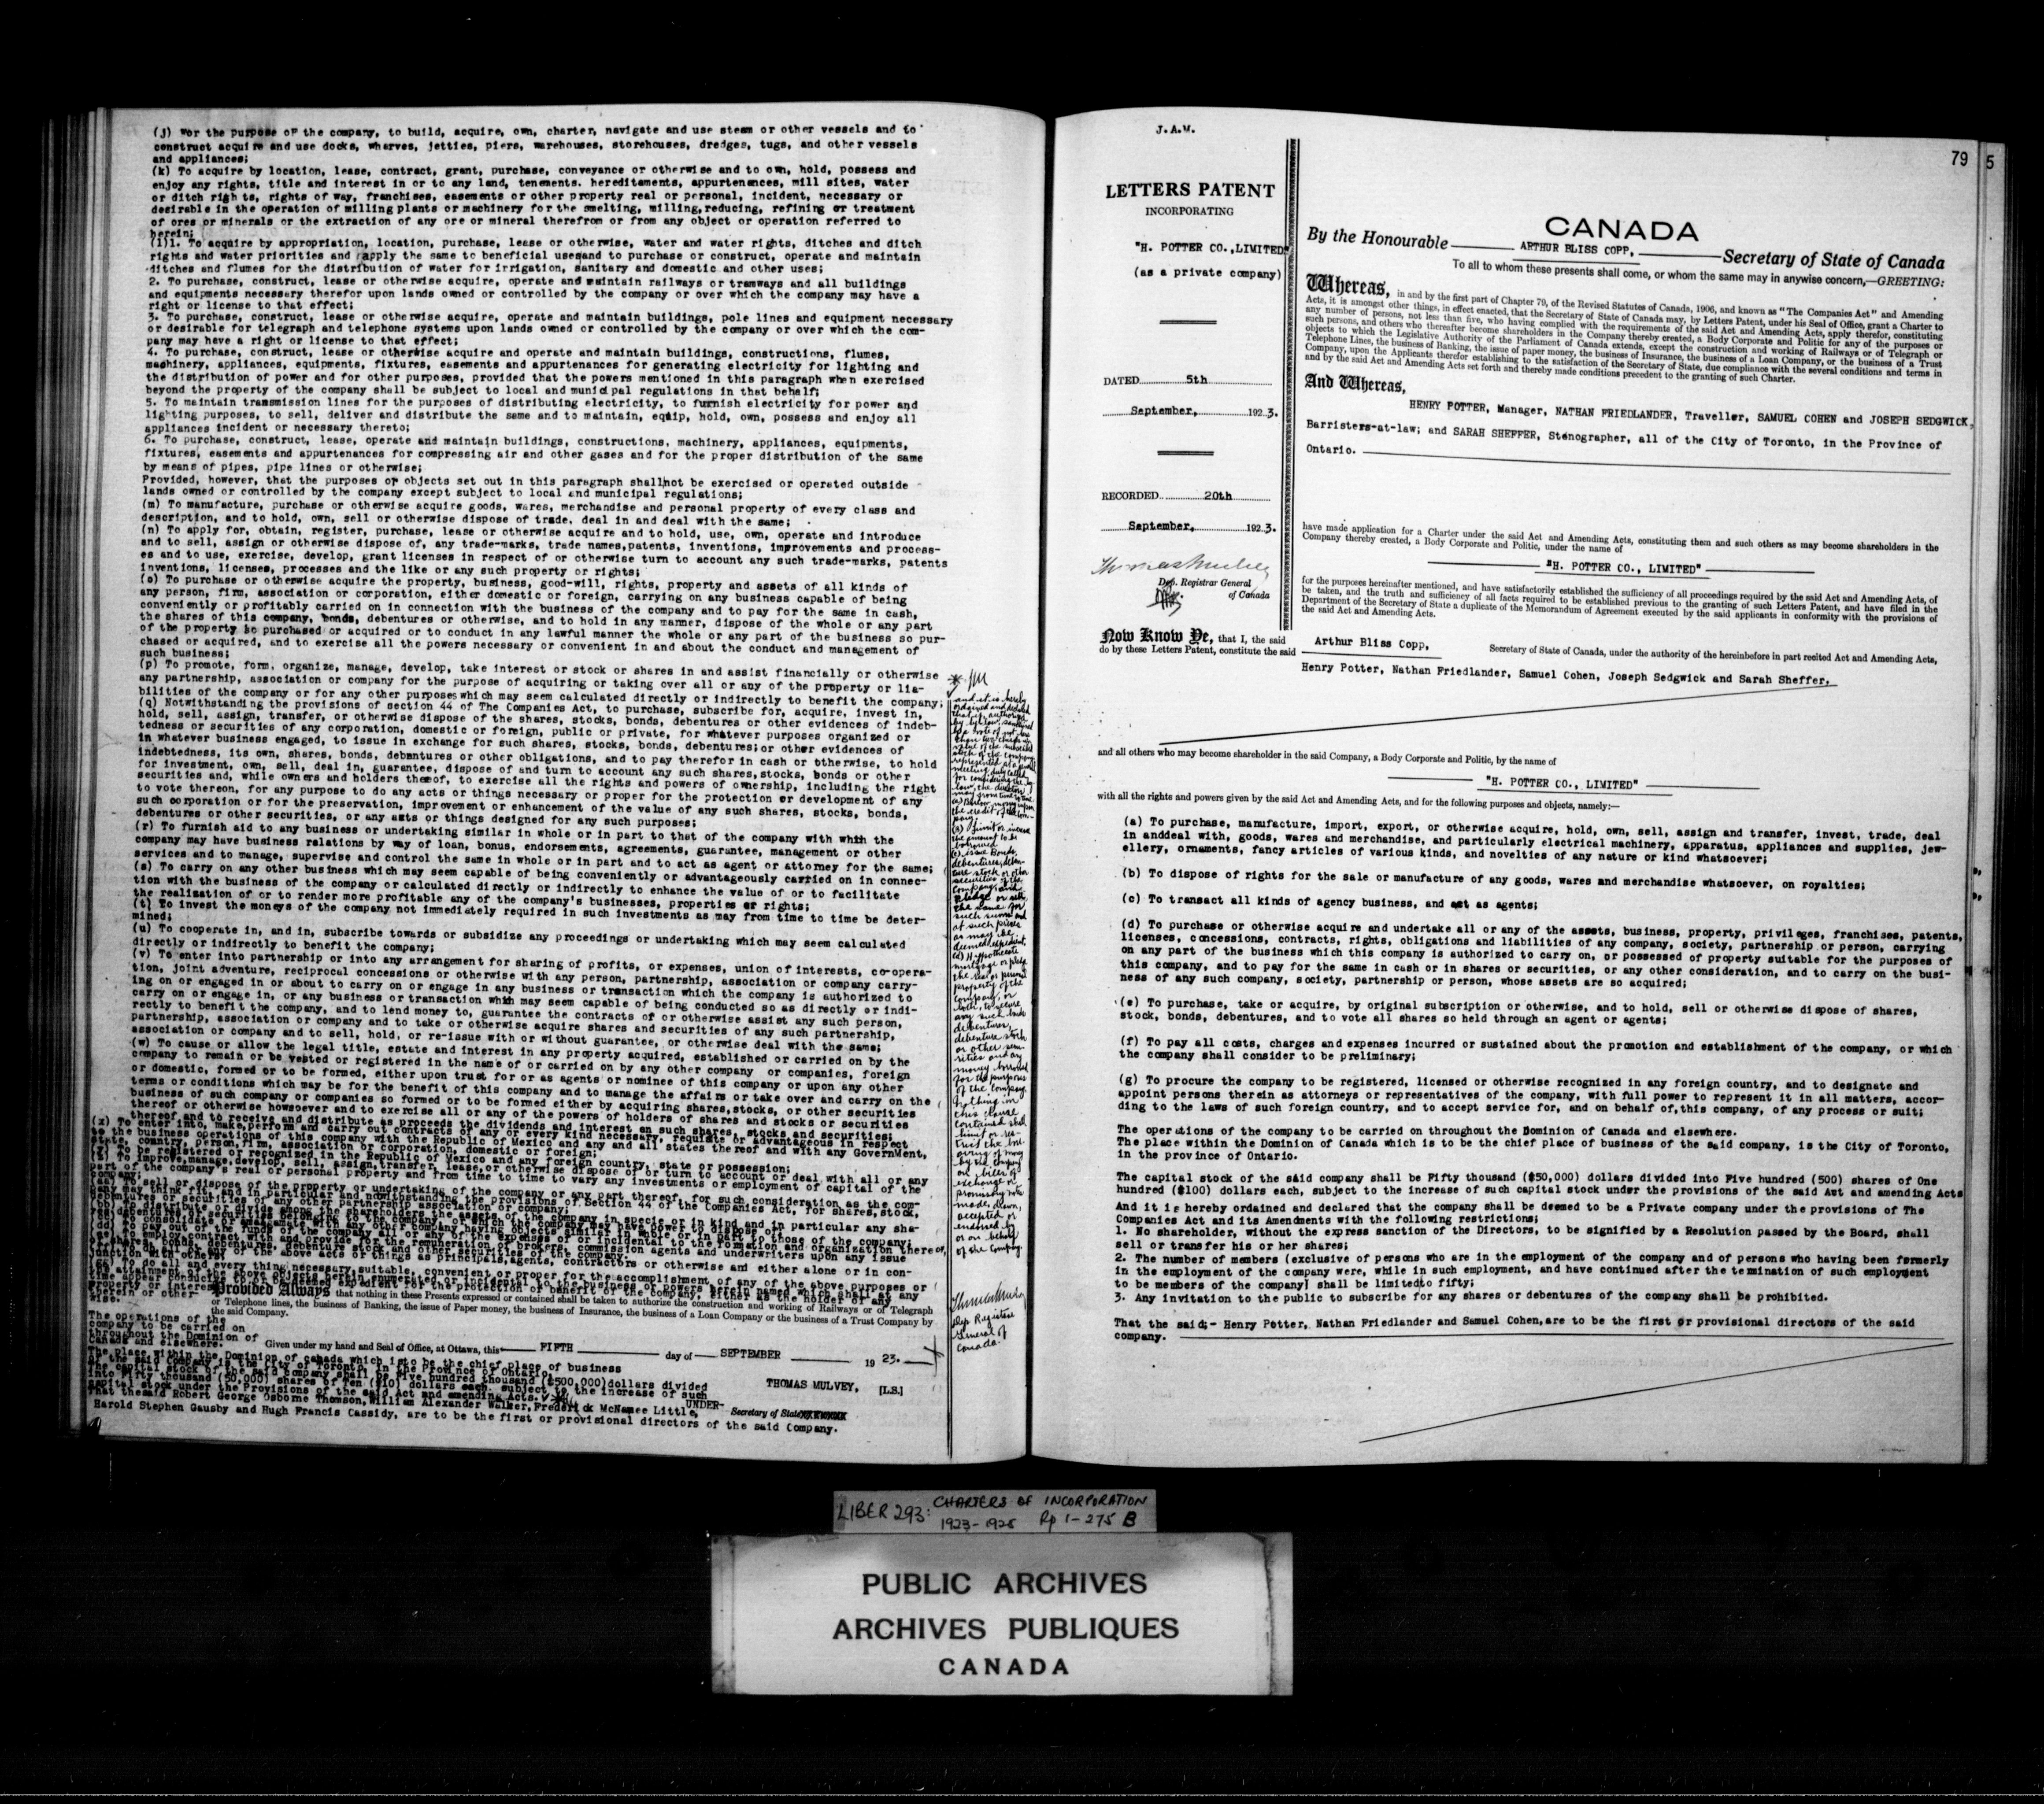 (j) For the purpose of the company, to build, acquire, own, charter, navigate and use steam or other vessels and to
construct acquire and use docks, wharves, jetties, piers, warehouses, storehouses, dredges, tugs, and other vessels
and appliances;
(k) To acquire by location, lease, contract, grant, purchase, conveyance or otherwise and to own, hold, possess and
enjoy any rights, title and interest in or to any land, tenements. hereditaments, appurtenances, mill sites, water
or ditch rights, rights of way, franchises, easements or other property real or personal, incident, necessary or
desirable in the operation of milling plants or machinery for the smelting, milling,reducing, refining or treatment
of ores or minerals or the extraction of any ore or mineral therefrom or from any object or operation referred to
herein;
(l)1. To acquire by appropriation, location, purchase, lease or otherwise, water and water rights, ditches and ditch
rights and water priorities and apply the same to beneficial usesand to purchase or construct, operate and maintain
ditches and flumes for the distribution of water for irrigation, sanitary and domestic and other uses;
2. To purchase, construct, lease or otherwise acquire, operate and maintain railways or tramways and all buildings
and equipments necessary therefor upon lands owned or controlled by the company or over which the company may have a
right or license to that effect;
3. To purchase, construct, lease or otherwise acquire, operate and maintain buildings, pole lines and equipment necessary
or desirable for telegraph and telephone systems upon lands owned or controlled by the company or over which the com-
pany may have a right or license to that effect;
4. To purchase, construct, lease or otherwise acquire and operate and maintain buildings, constructions, flumes,
machinery, appliances, equipments, fixtures, easements and appurtenances for generating electricity for lighting and
the distribution of power and for other purposes, provided that the powers mentioned in this paragraph when exercised
beyond the property of the company shall be subject to local and municipal regulations in that behalf;
5. To maintain transmission lines for the purposes of distributing electricity, to furnish electricity for power and
lighting purposes, to sell, deliver and distribute the same and to maintain, equip, hold, own, possess and enjoy all
appliances incident or necessary thereto;
6. To purchase, construct, lease, operate and maintain buildings, constructions, machinery, appliances, equipments,
fixtures, easements and appurtenances for compressing air and other gases and for the proper distribution of the same
by means of pipes, pipe lines or otherwise;
Provided, however, that the purposes or objects set out in this paragraph shallnot be exercised or operated outside
lands owned or controlled by the company except subject to local and municipal regulations;
(m) To manufacture, purchase or otherwise acquire goods, wares, merchandise and personal property of every class and
description, and to hold, own, sell or otherwise dispose of trade, deal in and deal with the same;
(n) To apply for, obtain, register, purchase, lease or otherwise acquire and to hold, use, own, operate and introduce
and to sell, assign or otherwise dispose of, any trade-marks, trade names,patents, inventions, improvements and process-
es and to use, exercise, develop, grant licenses in respect of or otherwise turn to account any such trade-marks, patents
inventions, licenses, processes and the like or any such property or rights;
(o) To purchase or otherwise acquire the property, business, good-will, rights, property and assets of all kinds of
any person, firm, association or corporation, either domestic or foreign, carrying on any business capable of being
conveniently or profitably carried on in connection with the business of the company and to pay for the same in cash,
the shares of this company, bonds, debentures or otherwise, and to hold in any manner, dispose of the whole or any part
of the property so purchased or acquired or to conduct in any lawful manner the whole or any part of the business so pur-
chased or acquired, and to exercise all the powers necessary or convenient in and about the conduct and management of
such business;
(p) To promote, form, organize, manage, develop, take interest or stock or shares in and assist financially or otherwise
any partnership, association or company for the purpose of acquiring or taking over all or any of the property or lia-
bilities of the company or for any other purposes which may seem calculated directly or indirectly to benefit the company;
(q) Notwithstanding the provisions of section 44 of The Companies Act, to purchase, subscribe for, acquire, invest in,
hold, sell, assign, transfer, or otherwise dispose of the shares, stocks, bonds, debentures or other evidences of indeb-
tedness or securities of any corporation, domestic or foreign, public or private, for whatever purposes organized or
in whatever business engaged, to issue in exchange for such shares, stocks, bonds, debentures; or other evidences of
indebtedness, its own, shares, bonds, debentures or other obligations, and to pay therefor in cash or otherwise, to hold
for investment, own, sell, deal in, guarantee, dispose of and turn to account any such shares,stocks, bonds or other
securities and, while owners and holders thereof, to exercise all the rights and powers of ownership, including the right
to vote thereon, for any purpose to do any acts or things necessary or proper for the protection or development of any
such corporation or for the preservation, improvement or enhancement of the value of any such shares, stocks, bonds,
debentures or other securities, or any acts or things designed for any such purposes;
(r) To furnish aid to any business or undertaking similar in whole or in part to that of the company with which the
company may have business relations by way of loan, bonus, endorsements, agreements, guarantee, management or other
services and to manage, supervise and control the same in whole or in part and to act as agent or attorney for the same;
(s) To carry on any other business which may seem capable of being conveniently or advantageously carried on in connec-
tion with the business of the company or calculated directly or indirectly to enhance the value of or to facilitate
the realization of or to render more profitable any of the company's businesses, properties or rights;
(t) To invest the moneys of the company not immediately required in such investments as may from time to time be deter-
mined;
(u) To cooperate in, and in, subscribe towards or subsidize any proceedings or undertaking which may seem calculated
directly or indirectly to benefit the company;
(v) To enter into partnership or into any arrangement for sharing of profits, or expenses, union of interests, co-opera-
tion, joint adventure, reciprocal concessions or otherwise with any person, partnership, association or company carry-
ing on or engaged in or about to carry on or engage in any business or transaction which the company is authorized to
carry on or engage in, or any business or transaction which may seem capable of being conducted so as directly or indi-
rectly to benefit the company, and to lend money to, guarantee the contracts of or otherwise assist any such person,
partnership, association or company and to take or otherwise acquire shares and securities of any such partnership,
association or company and to sell, hold, or re-issue with or without guarantee, or otherwise deal with the same;
(w) To cause or allow the legal title, estate and interest in any property acquired, established or carried on by the
company to remain or be vested or registered in the name of or carried on by any other company or companies, foreign
or domestic, formed or to be formed, either upon trust for or as agents or nominee of this company or upon any other
terms or conditions which may be for the benefit of this company and to manage the affairs or take over and carry on the
business of such company or companies so formed or to be formed either by acquiring shares,stocks, or other securities
thereof or otherwise howsoever and to exercise all or any of the powers of holders of shares and stocks or securities
thereof and to receive and distribute as proceeds the dividends and interest on such shares, stocks and securities;
(x) To enter into, make,perform and carry out contracts of any or every kind necessary, requisite or advantageous in respect
to the business operations of this company with the Republic of Mexico and any and all states thereof and with any Government,
state, country, person, firm, association or corporation, domestic or foreign;
(y) To be registered or recognized in the Republic of Mexico and any foreign country, state or possession;
(z) To improve,manage,develop, sell, assign,transfer, lease,or otherwise dispose of or turn to account or deal with all or any
part of the company's real or personal property and from time to time to vary any investments or employment of capital of the
company;
(aa) To sell or dispose of the property or undertaking of the company or any part thereof, for such consideration as the com-
pany may think fit, and in particular and notwithstanding the provisions of Section 44 of the Companies Act, for shares,stock,
debentures or securities of any other partnership association or company;
(gg) To do all and every thing necessary,suitable, convenient or proper for the accomplishment of any of the above purposes or
Provided Always that nothing in these Presents expressed or contained shall be taken to authorize the construction and working of Railways or of Telegraph
or Telephone lines, the business of Banking, the issue of Paper money, the business of Insurance, the business of a Loan Company or the business of a Trust Company by
the said Company.
The operations of the
company to be carried on
throughout the Dominion of
Canada and elsewhere.
Given under my hand and Seal of Office, at Ottawa, this FIFTH day of SEPTEMBER 19 23.
The place within the Dominion of canada which isto be the chief place of business
of the said Company is the City of Toronto, in the Province of Ontario.
The capital stock of the said company shall be Five hundred thousand ($500,000)dollars divided
into Fifty thousand (50,000) shares of Ten ($10) dollars each, subject to the increase of such
capital stock under the Provisions of the said Act and amending Acts.
THOMAS MULVEY, [L.S.]
That thesaid Robert George Osborne Thomson,William Alexander Walker,Frederick McNamee Little,
UNDER-
Secretary of State
Harold Stephen Gausby and Hugh Francis Cassidy, are to be the first or provisional directors of the said Company.
and it is hereby
ordained and declared
that if authorized
by by-law, sanctioned
by a vote of not less
than two-thirds in
value of the subscribed
stock of the company
represented at a general
meeting duly called
for considering the by-
law, the directors
may from time to time
(a) Borrow money upon
the credit of the com-
pany
(b) Limit or increase
the amount to be
borrowed
(c) issue Bonds,
debentures, deben-
ture stock or other
securities of the
Company and
pledge or sell
the same for
such sums and
at such prices
as may be
deemed expedient,
(d) Hypothecate
mortgage or pledge
the real or personal
property of the
Company, or
both, to secure
any such bonds
debentures,
debenture stock
or other secu-
rities and any
money borrowed
for the purposes
of the Company
Nothing in
this clause
contained shall
limit or res-
trict the bor-
rowing of money
by the Company
on bills of
exchange or
promissory notes
made, drawn,
accepted or
endorsed by
or on behalf
of the Company.
Thomas Mulvey
Dep Registrar
General of
Canada.
J.A.M.
79
5
LETTERS PATENT
INCORPORATING
"H. POTTER CO.,LIMITED"
(as a private company)
DATED 5th
September, 1923.
RECORDED 20th
September, 1923.
Thomas Mulvey
Dep. Registrar General
of Canada
CANADA
By the Honourable ARTHUR BLISS COPP, Secretary of State of Canada
To all to whom these presents shall come, or whom the same may in anywise concern,—GREETING:
Whereas, in and by the first part of Chapter 79, of the Revised Statutes of Canada, 1906, and known as "The Companies Act" and Amending
Acts, it is amongst other things, in effect enacted, that the Secretary of State of Canada may, by Letters Patent, under his Seal of Office, grant a Charter to
any number of persons, not less than five, who having complied with the requirements of the said Act and Amending Acts, apply therefor, constituting
such persons, and others who thereafter become shareholders in the Company thereby created, a Body Corporate and Politic for any of the purposes or
objects to which the Legislative Authority of the Parliament of Canada extends, except the construction and working of Railways or of Telegraph or
Telephone Lines, the business of Banking, the issue of paper money, the business of Insurance, the business of a Loan Company, or the business of a Trust
Company, upon the Applicants therefor establishing to the satisfaction of the Secretary of State, due compliance with the several conditions and terms in
and by the said Act and Amending Acts set forth and thereby made conditions precedent to the granting of such Charter.
And Whereas,
HENRY POTTER, Manager, NATHAN FRIEDLANDER, Traveller, SAMUEL COHEN and JOSEPH SEDGWICK,
Barristers-at-law; and SARAH SHEFFER, Stenographer, all of the City of Toronto, in the Province of
Ontario.
have made application for a Charter under the said Act and Amending Acts, constituting them and such others as may become shareholders in the
Company thereby created, a Body Corporate and Politic, under the name of
"H. POTTER CO., LIMITED"
for the purposes hereinafter mentioned, and have satisfactorily established the sufficiency of all proceedings required by the said Act and Amending Acts, to
be taken, and the truth and sufficiency of all facts required to be established previous to the granting of such Letters Patent, and have filed in the
Department of the Secretary of State a duplicate of the Memorandum of Agreement executed by the said applicants in conformity with the provisions of
the said Act and Amending Acts.
Now Know Ye, that I, the said Arthur Bliss Copp, Secretary of State of Canada, under the authority of the hereinbefore in part recited Act and Amending Acts,
do by these Letters Patent, constitute the said
Henry Potter, Nathan Friedlander, Samuel Cohen, Joseph Sedgwick and Sarah Sheffer,
and all others who may become shareholder in the said Company, a Body Corporate and Politic, by the name of
"H. POTTER CO., LIMITED"
with all the rights and powers given by the said Act and Amending Acts, and for the following purposes and objects, namely:—
(a) To purchase, manufacture, import, export, or otherwise acquire, hold, own, sell, assign and transfer, invest, trade, deal
in anddeal with, goods, wares and merchandise, and particularly electrical machinery, apparatus, appliances and supplies, jew-
ellery, ornaments, fancy articles of various kinds, and novelties of any nature or kind whatsoever;
(b) To dispose of rights for the sale or manufacture of any goods, wares and merchandise whatsoever, on royalties;
(c) To transact all kinds of agency business, and act as agents;
(d) To purchase or otherwise acquire and undertake all or any of the assets, business, property, privileges, franchises, patents,
licenses, concessions, contracts, rights, obligations and liabilities of any company, society, partnership or person, carrying
on any part of the business which this company is authorized to carry on, or possessed of property suitable for the purposes of
this company, and to pay for the same in cash or in shares or securities, or any other consideration, and to carry on the busi-
ness of any such company, society, partnership or person, whose assets are so acquired;
(e) To purchase, take or acquire, by original subscription or otherwise, and to hold, sell or otherwise dispose of shares,
stock, bonds, debentures, and to vote all shares so held through an agent or agents;
(f) To pay all costs, charges and expenses incurred or sustained about the promotion and establishment of the company, or which
the company shall consider to be preliminary;
(g) To procure the company to be registered, licensed or otherwise recognized in any foreign country, and to designate and
appoint persons therein as attorneys or representatives of the company, with full power to represent it in all matters, accor-
ding to the laws of such foreign country, and to accept service for, and on behalf of,this company, of any process or suit;
The operations of the company to be carried on throughout the Dominion of Canada and elsewhere.
The place within the Dominion of Canada which is to be the chief place of business of the said company, is the City of Toronto,
in the province of Ontario.
The capital stock of the said company shall be Fifty thousand ($50,000) dollars divided into Five hundred (500) shares of One
hundred ($100) dollars each, subject to the increase of such capital stock under the provisions of the said Act and amending Acts
And it is hereby ordained and declared that the company shall be deemed to be a Private company under the provisions of The
Companies Act and its Amendments with the following restrictions;
1. No shareholder, without the express sanction of the Directors, to be signified by a Resolution passed by the Board, shall
sell or transfer his or her shares;
2. The number of members (exclusive of persons who are in the employment of the company and of persons who having been formerly
in the employment of the company were, while in such employment, and have continued after the termination of such employment
to be members of the company) shall be limitedto fifty;
3. Any invitation to the public to subscribe for any shares or debentures of the company shall be prohibited.
That the said;- Henry Potter, Nathan Friedlander and Samuel Cohen,are to be the first or provisional directors of the said
company.
LIBER 293: CHARTERS OF INCORPORATION
1923-1925 Rp 1-275 B
PUBLIC ARCHIVES
ARCHIVES PUBLIQUES
CANADA